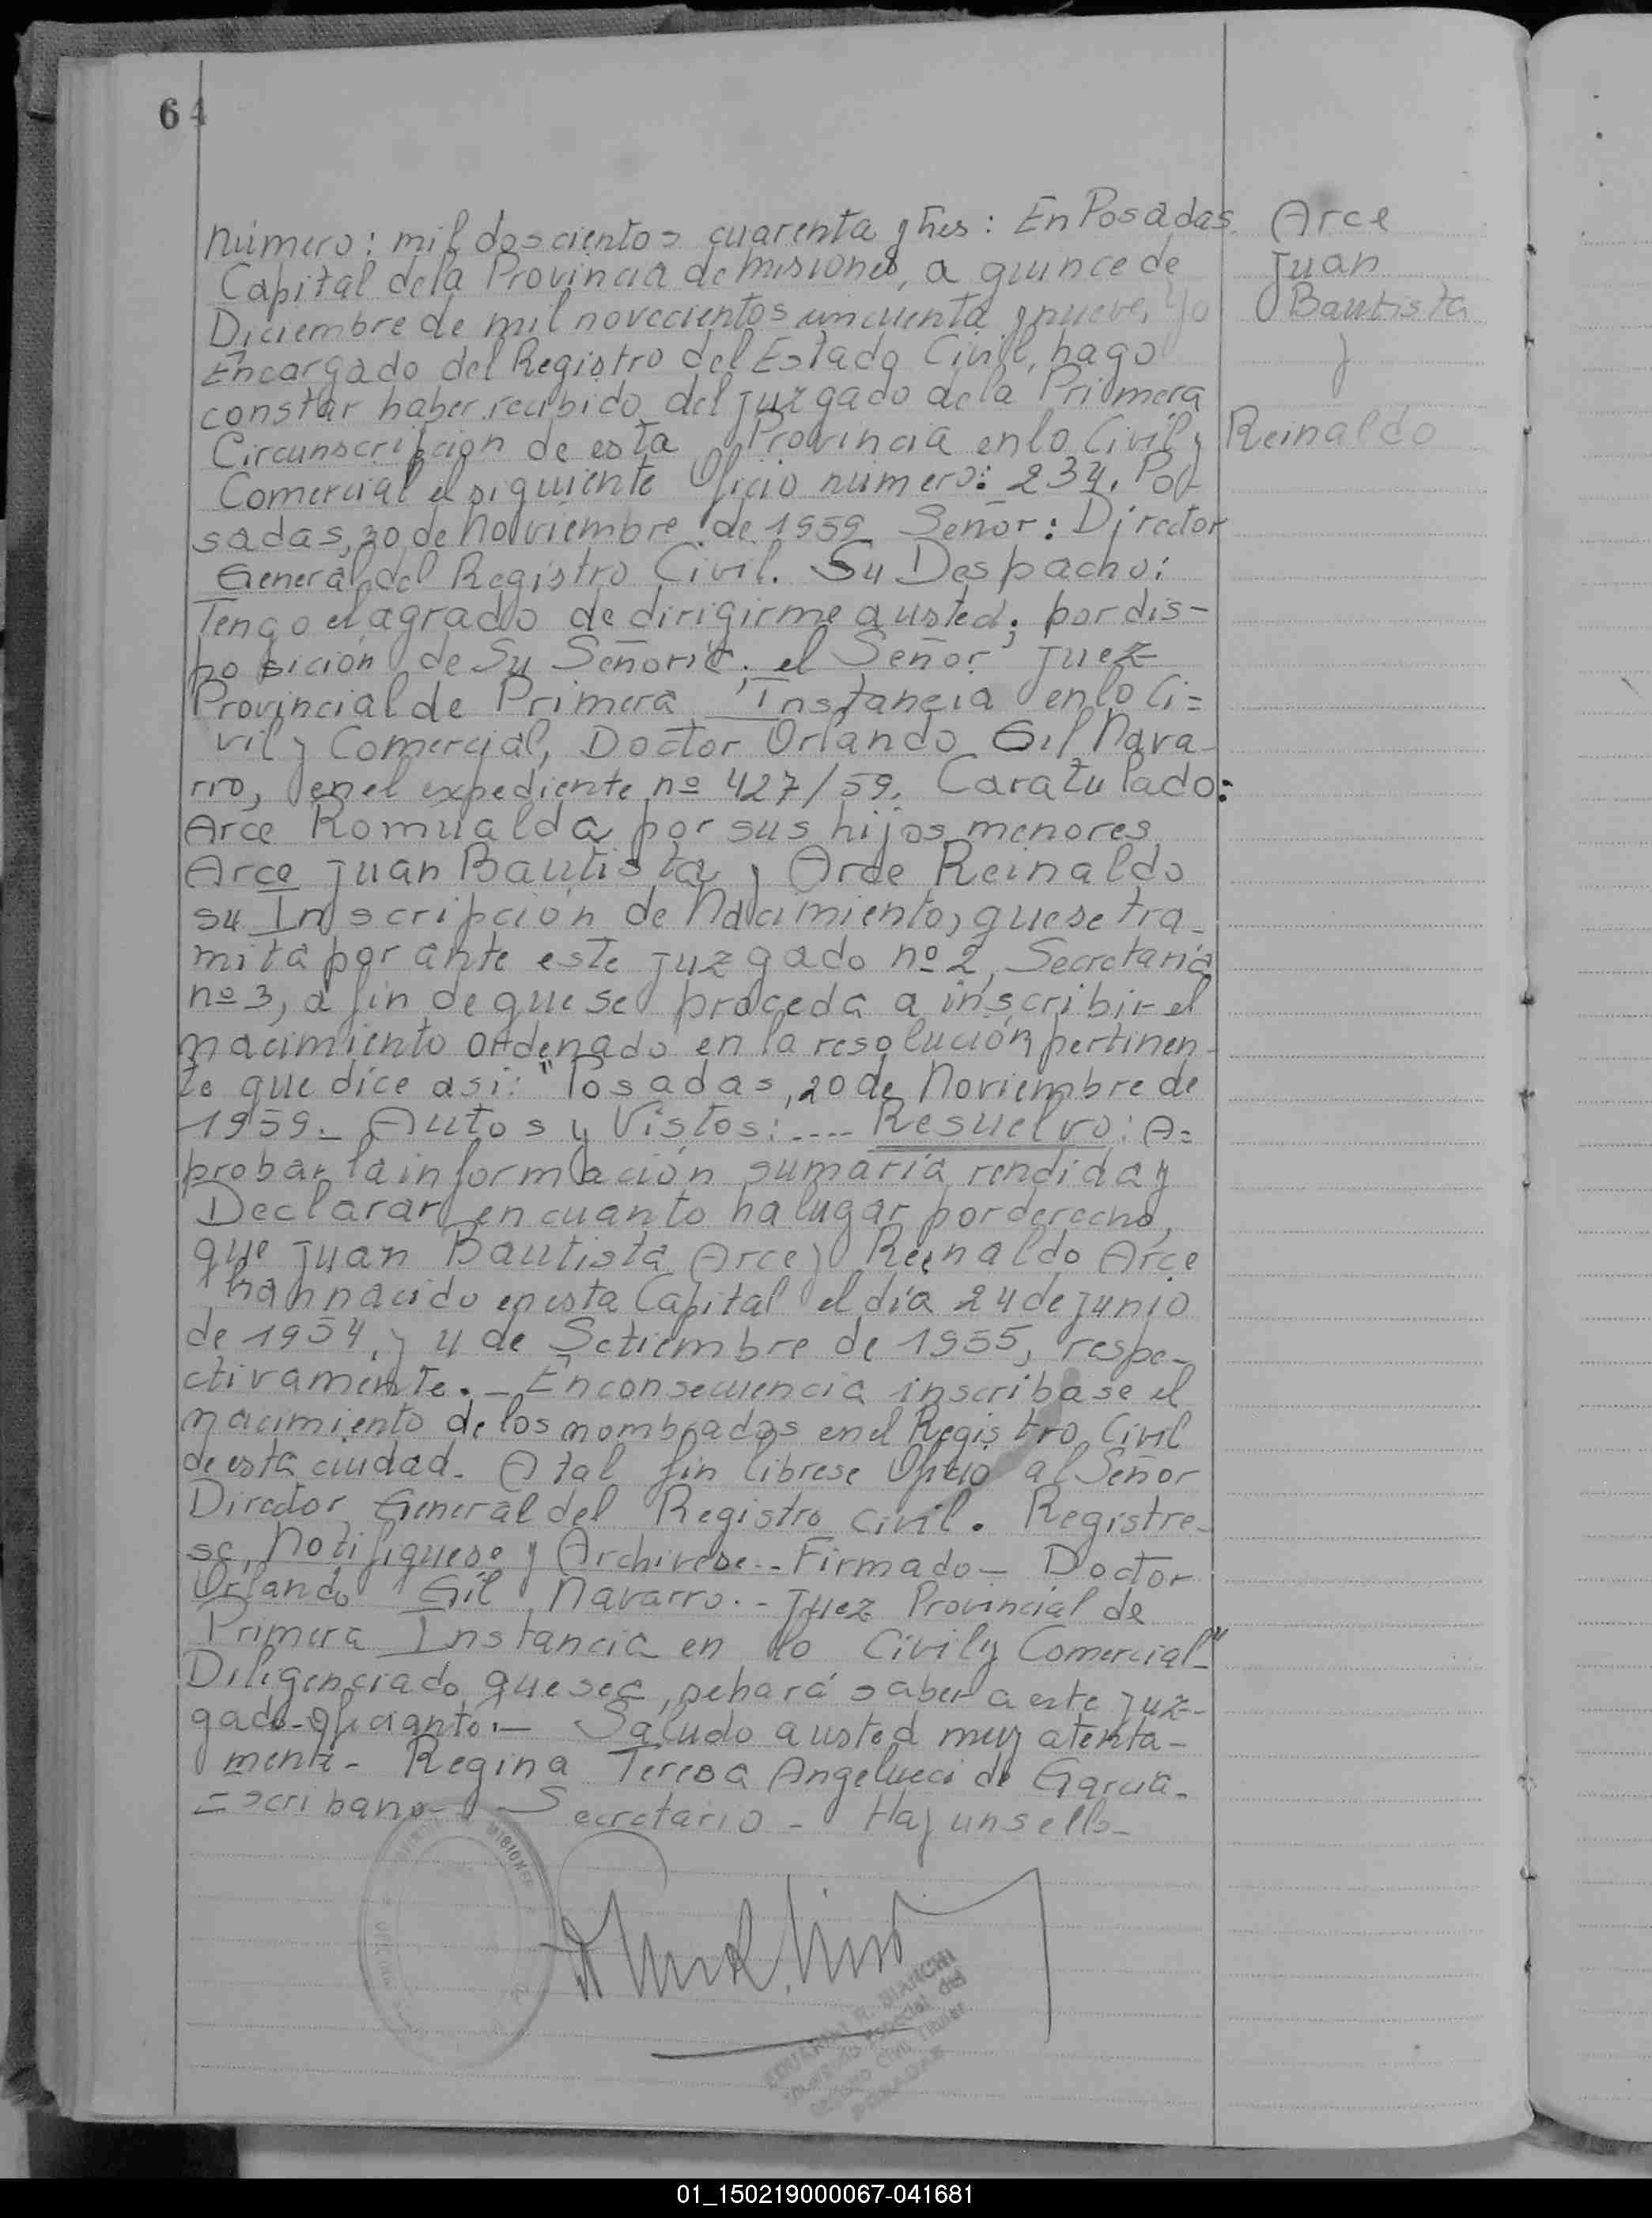 64
Número: mil doscientos cuarenta y tres: En Posadas
Capital de la Provincia de Misiones, a quince de
Diciembre de mil novecientos cincuenta y nueve, Yo
Encargado del Registro del Estado Civil, hago
constar haber recibido del Juzgado de la Primera
Circunscripción de esta Provincia en lo Civil y
Comercial el siguiente Oficio número: 234. Po-
sadas, 20 de Noviembre de 1959. Señor: Director
General del Registro Civil. Su Despacho:
Tengo el agrado de dirigirme a usted; por dis-
posición de Su Señoria; el Señor Juez
Provincial de Primera Instancia en lo Ci=
vil y Comercial, Doctor Orlando Gil Nava-
rro, en el expediente nº 427/59. Caratulado:
Arce Romualda por sus hijos menores
Arce Juan Bautista y Arce Reinaldo
su Inscripción de Nacimiento, que se tra-
mita por ante este Juzgado nº 2, Secretaria
nº 3, a fin de que se proceda a inscribir el
nacimiento ordenado en la resolución pertinen-
te que dice asi: "Posadas, 20 de Noviembre de
1959.- Autos y Vistos:.... Resuelvo: A=
probar la información sumaria rendida y
Declarar en cuanto ha lugar por derecho,
que Juan Bautista Arce y Reinaldo Arce
han nacido en esta Capital el día 24 de Junio
de 1954, y 4 de Setiembre de 1955, respe-
ctivamente.- En consecuencia inscribase el
nacimiento de los nombrados en el Registro Civil
de esta ciudad. A tal fin librese Oficio al Señor
Director General del Registro Civil. Registre-
se, Notifiquese y Archivese.- Firmado - Doctor
Orlando Gil Navarro.- Juez Provincial de
Primera Instancia en lo Civil y Comercial"
Diligenciado que sea, se hará saber a este Juz-
gado oficiante.- Saludo a usted muy atenta-
mente- Regina Teresa Angelucci de Garcia.
Escribano- Secretario - Hay un sello-
Arce
Juan
Bautista
y
Reinaldo
MISIONES
R. BIANCHI
POSADAS
01_150219000067-041681